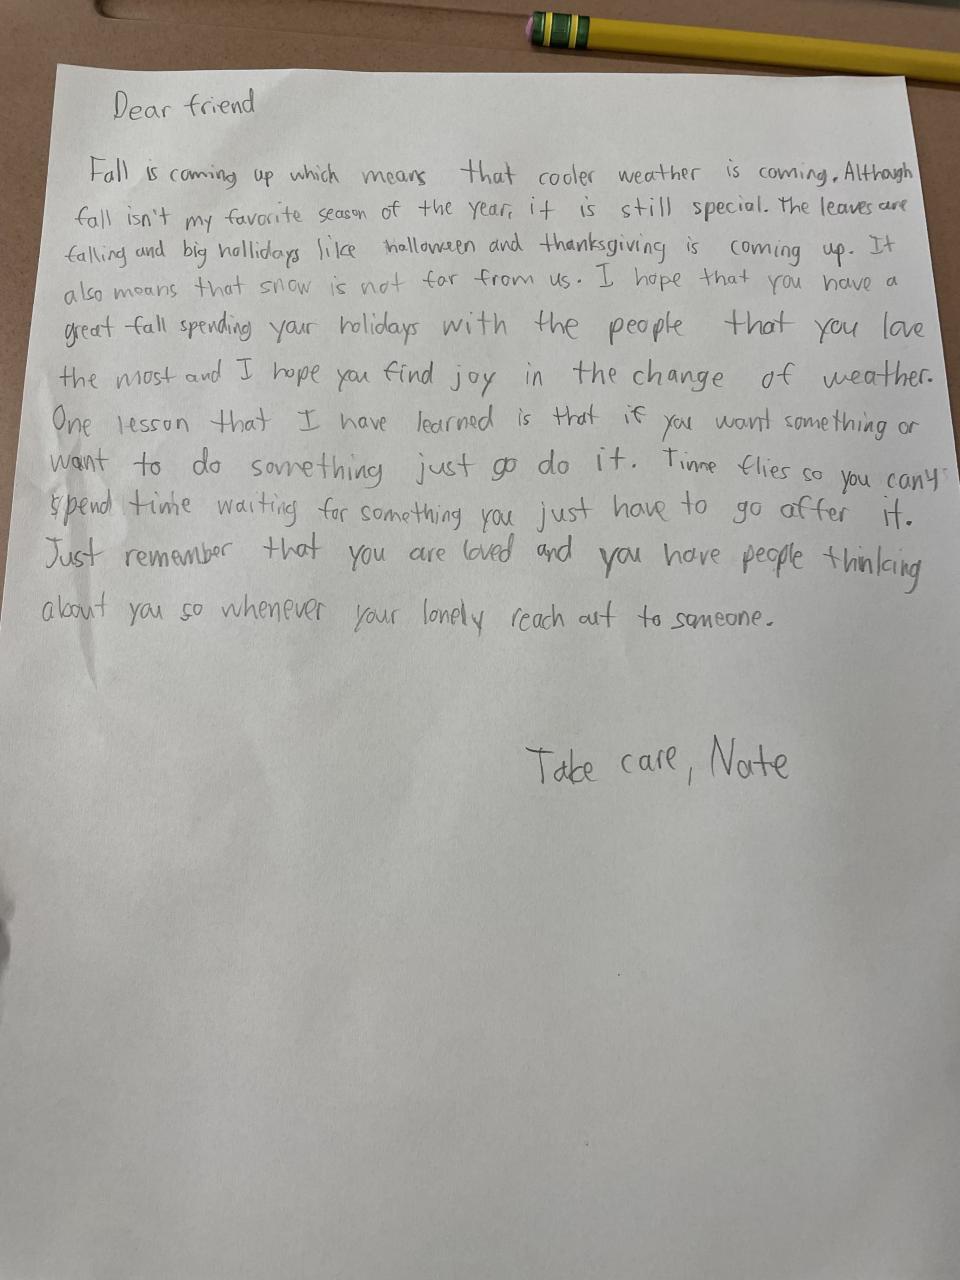 Dear friend
Fall is coming up which means that cooler weather is coming. Although
fall isn't my favorite season of the year, it is still special. The leaves are
falling and big hollidays like halloween and thanksgiving is coming up. It
also means that snow is not far from us. I hope that you have a
great fall spending your holidays with the people that you love
the most and I hope you find joy in the change of weather.
One lesson that I have learned is that if you want something or
want to do something just go do it. Time flies so you can't
spend time waiting for something you just have to go after it.
Just remember that you are loved and you have people thinking
about you so whenever your lonely reach out to someone.
Take care, Nate